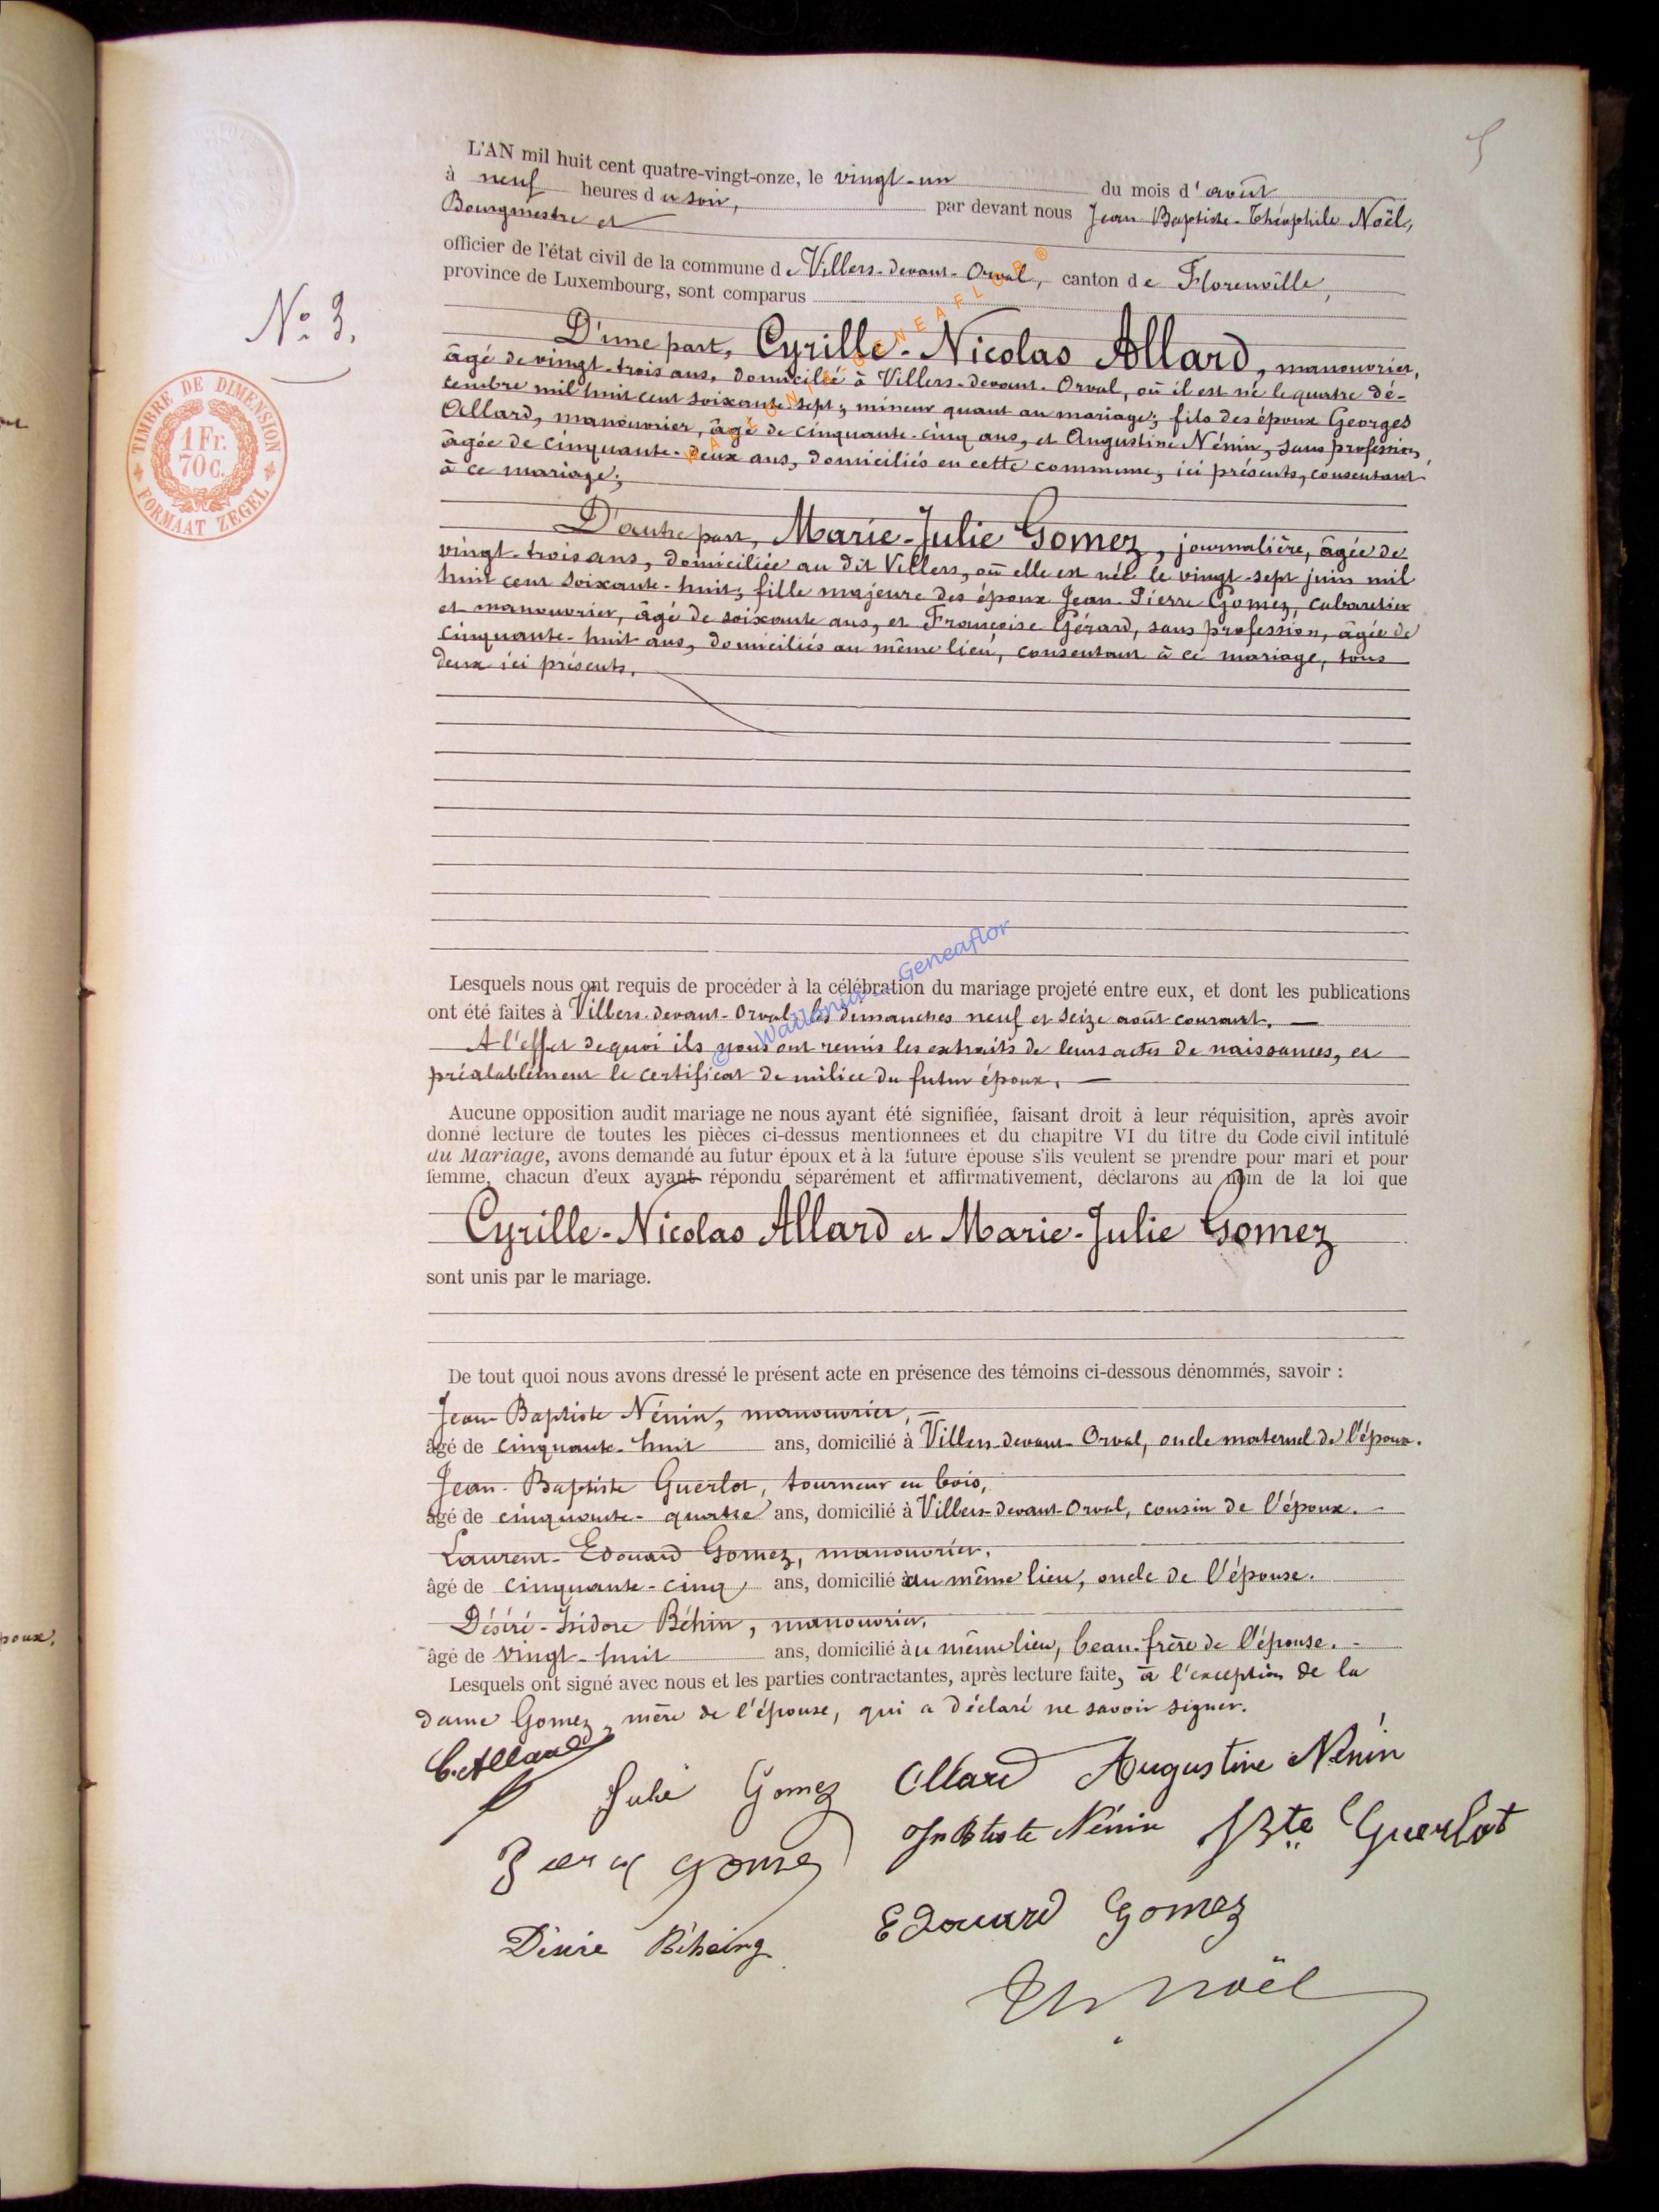 5
L'AN mil huit cent quatre-vingt-onze, le vingt-un du mois d'août
à neuf heures du soir, par devant nous Jean Baptiste-Théophile Noël,
Bourgmestre et
officier de l'état civil de la commune de Villers-devant-Orval, canton de Florenville,
province de Luxembourg, sont comparus
No 3.
D'une part, Cyrille-Nicolas Allard, manouvrier,
âgé de vingt-trois ans, domicilié à Villers-devant-Orval, où il est né le quatre dé-
cembre mil huit cent soixante-sept; mineur quant au mariage; fils des époux Georges
Allard, manouvrier, âgé de cinquante-cinq ans, et Augustine Nénin, sans profession,
âgée de cinquante-deux ans, domiciliés en cette commune, ici présents, consentant
à ce mariage;
TIMBRE DE DIMENSION
1 Fr.
70 c.
FORMAAT ZEGEL
D'autre part, Marie-Julie Gomez, journalière, âgée de
vingt-trois ans, domiciliée au dit Villers, où elle est née le vingt-sept juin mil
huit cent soixante-huit; fille majeure des époux Jean-Pierre Gomez, cabaretier
et manouvrier, âgé de soixante ans, et Françoise Gérard, sans profession, âgée de
cinquante-huit ans, domiciliés au même lieu, consentant à ce mariage, tous
deux ici présents.
WALLONIA-GENEAFLOR ®
© Wallonia - Geneaflor
Lesquels nous ont requis de procéder à la célébration du mariage projeté entre eux, et dont les publications
ont été faites à Villers-devant-Orval, les dimanches neuf et seize août courant. —
A l'effet de quoi ils nous ont remis les extraits de leurs actes de naissances, et
préalablement le certificat de milice du futur époux. —
Aucune opposition audit mariage ne nous ayant été signifiée, faisant droit à leur réquisition, après avoir
donné lecture de toutes les pièces ci-dessus mentionnees et du chapitre VI du titre du Code civil intitulé
du Mariage, avons demandé au futur époux et à la future épouse s'ils veulent se prendre pour mari et pour
femme, chacun d'eux ayant répondu séparément et affirmativement, déclarons au nom de la loi que
Cyrille-Nicolas Allard et Marie-Julie Gomez
sont unis par le mariage.
De tout quoi nous avons dressé le présent acte en présence des témoins ci-dessous dénommés, savoir :
Jean-Baptiste Nénin, manouvrier, —
âgé de cinquante-huit ans, domicilié à Villers-devant-Orval, oncle maternel de l'époux.
Jean-Baptiste Guerlot, tourneur en bois,
âgé de cinquante-quatre ans, domicilié à Villers-devant-Orval, cousin de l'époux. —
Laurent-Edouard Gomez, manouvrier,
âgé de cinquante-cinq ans, domicilié au même lieu, oncle de l'épouse.
Désiré-Isidore Béhin, manouvrier,
âgé de vingt-huit ans, domicilié au même lieu, beau-frère de l'épouse. -
Lesquels ont signé avec nous et les parties contractantes, après lecture faite, à l'exception de la
dame Gomez, mère de l'épouse, qui a déclaré ne savoir signer.
C. Allard
Julie Gomez Allard Augustine Nénin
Gomez Jn Btiste Nénin JBte Guerlot
Désire Béhaing Edouard Gomez
Th Noël
poux.